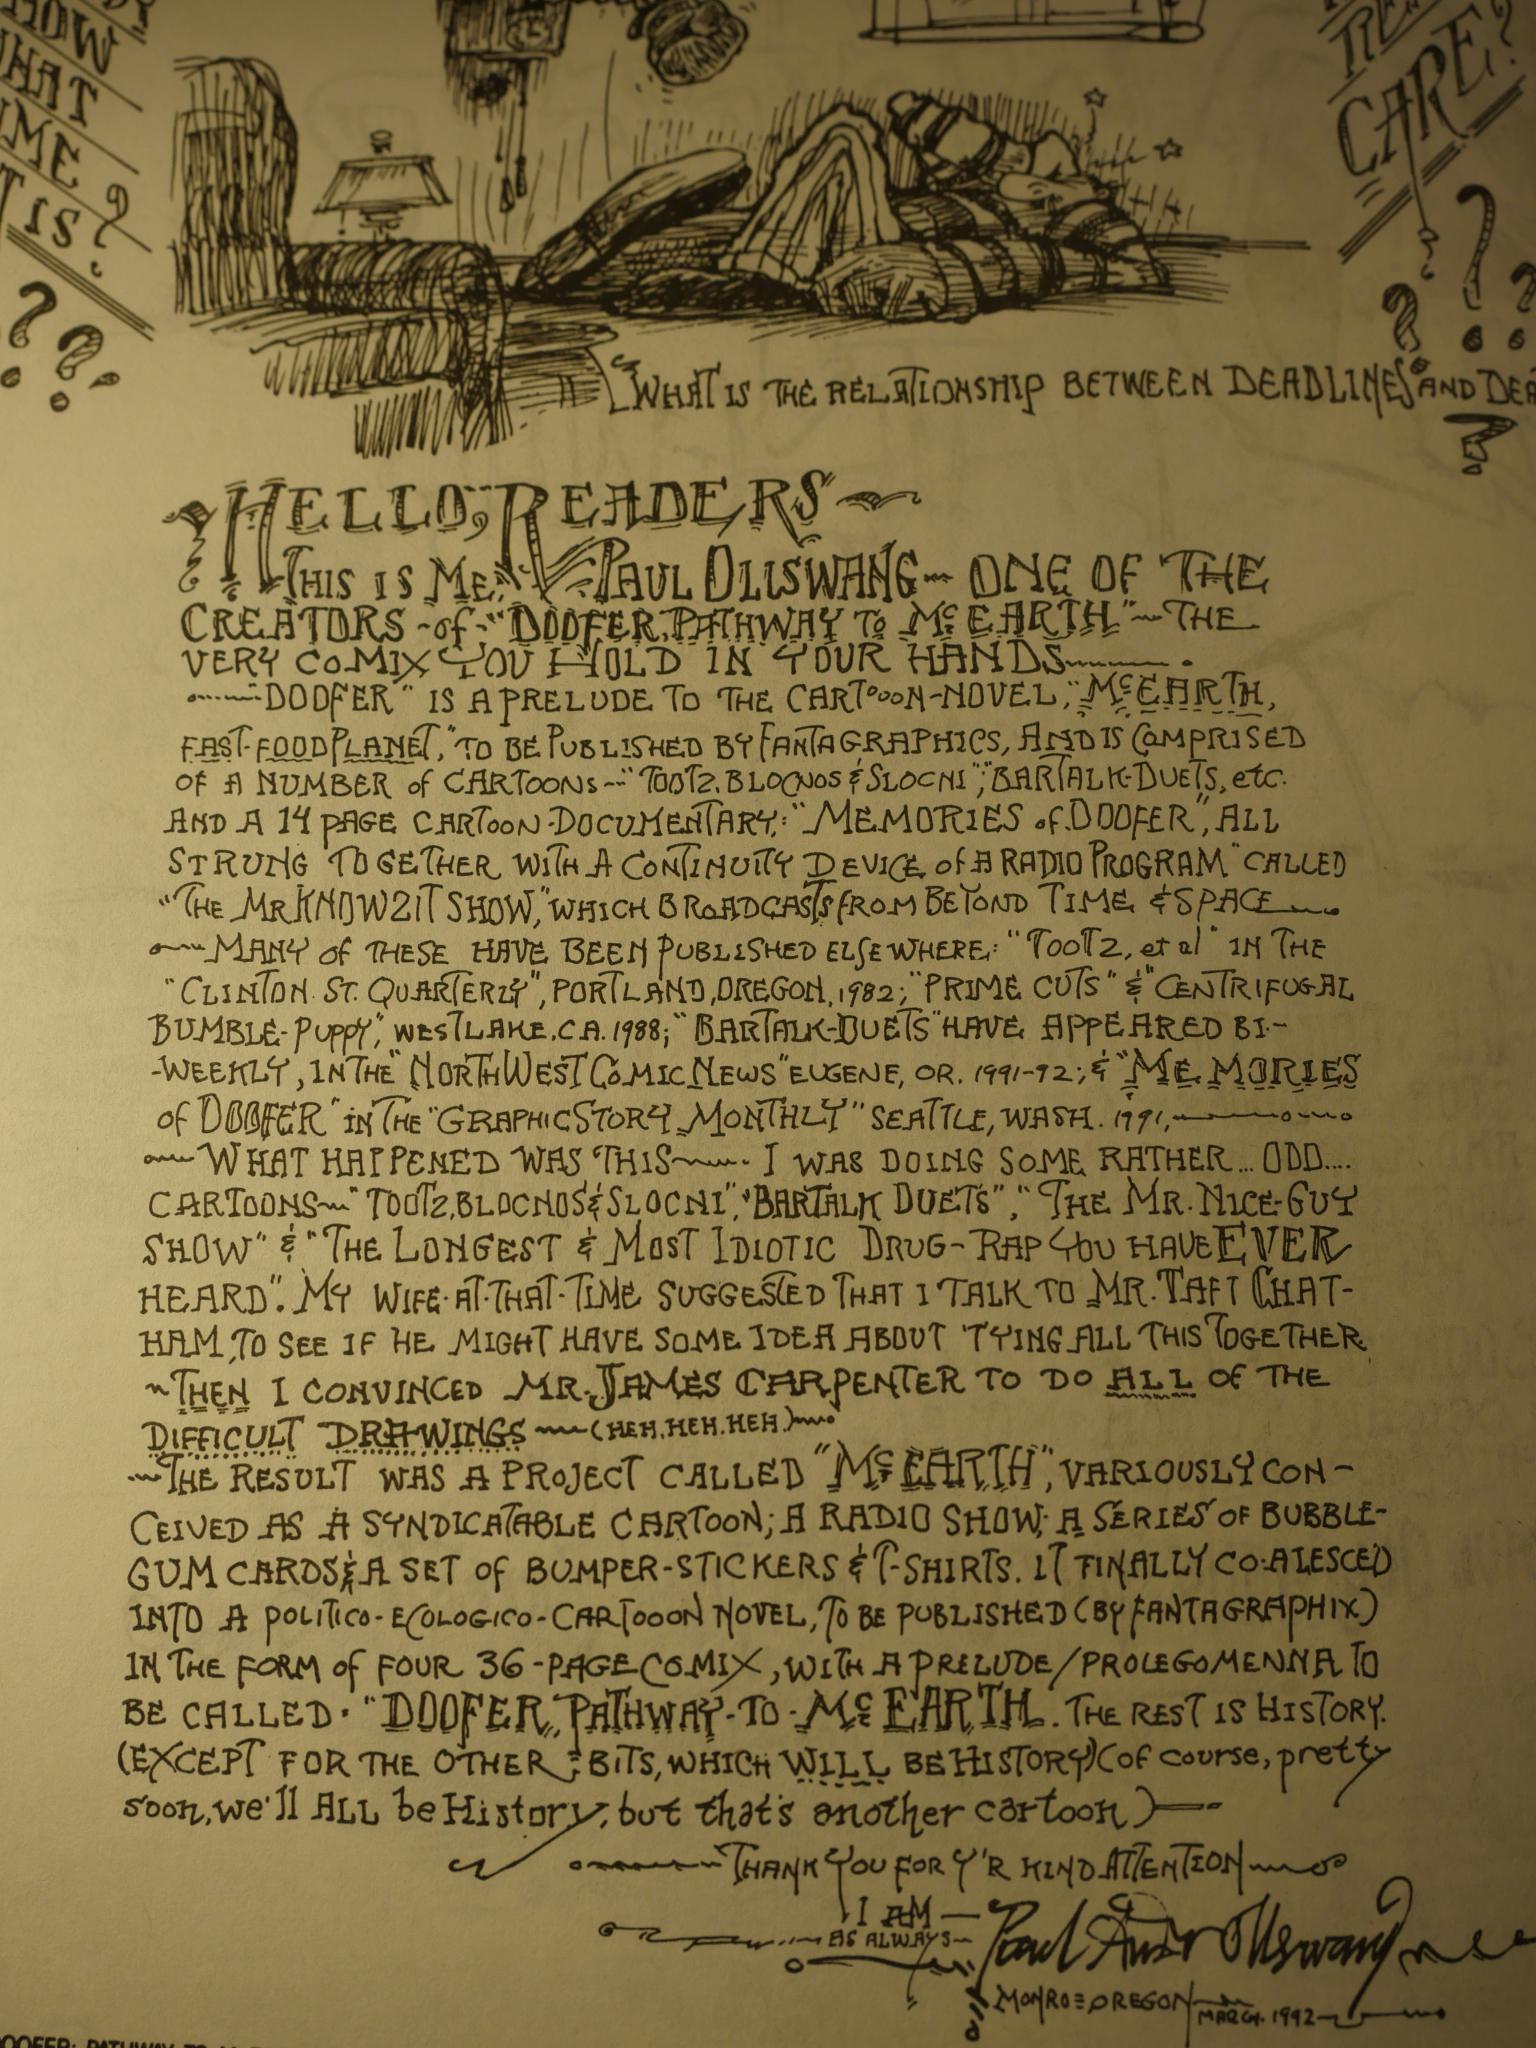 HOW
WHAT
TIME
IT IS?
CARE?
WHAT IS THE RELATIONSHIP BETWEEN DEADLINES AND DEA
HELLO, READERS
THIS IS ME, PAUL OLLSWANG — ONE OF THE
CREATORS - of - "DOOFER, PATHWAY TO McEARTH" — THE
VERY COMIX YOU HOLD IN YOUR HANDS
"DOOFER" IS A PRELUDE TO THE CARTOOON-NOVEL, "McEARTH,
FAST-FOOD PLANET," TO BE PUBLISHED BY FANTAGRAPHICS, AND IS COMPRISED
OF A NUMBER of CARTOONS — "TOOTZ, BLOCNOS & SLOCNI"; "BARTALK-DUETS, etc.
AND A 14 PAGE CARTOON-DOCUMENTARY: "MEMORIES of DOOFER", ALL
STRUNG TOGETHER WITH A CONTINUITY DEVICE of A RADIO PROGRAM "CALLED
"THE MR KNOW2IT SHOW," WHICH BROADCASTS FROM BEYOND TIME & SPACE
MANY OF THESE HAVE BEEN PUBLISHED ELSEWHERE: "TOOTZ, et al" IN THE
"CLINTON ST. QUARTERLY", PORTLAND, OREGON, 1982; "PRIME CUTS" & "CENTRIFUGAL
BUMBLE-PUPPY", WESTLAKE. CA. 1988; "BARTALK-DUETS" HAVE APPEARED BI-
-WEEKLY, IN THE "NORTHWEST COMIC NEWS" EUGENE, OR. 1991-92; & "MEMORIES
of DOOFER" IN THE "GRAPHIC STORY MONTHLY" SEATTLE, WASH. 1991,
WHAT HAPPENED WAS THIS — I WAS DOING SOME RATHER... ODD....
CARTOONS — "TOOTZ, BLOCNOS & SLOCNI", "BARTALK DUETS", "THE MR. NICE-GUY
SHOW" & "THE LONGEST & MOST IDIOTIC DRUG-RAP YOU HAVE EVER
HEARD". MY WIFE-AT-THAT-TIME SUGGESTED THAT I TALK TO MR. TAFT CHAT-
HAM, TO SEE IF HE MIGHT HAVE SOME IDEA ABOUT TYING ALL THIS TOGETHER.
THEN I CONVINCED MR. JAMES CARPENTER TO DO ALL OF THE
DIFFICULT DRAWINGS — (HEH. HEH. HEH.)
THE RESULT WAS A PROJECT CALLED "McEARTH", VARIOUSLY CON-
CEIVED AS A SYNDICATABLE CARTOON; A RADIO SHOW; A SERIES OF BUBBLE-
GUM CARDS & A SET of BUMPER-STICKERS & T-SHIRTS. IT FINALLY CO-ALESCED
INTO A POLITICO-ECOLOGICO-CARTOOON NOVEL, TO BE PUBLISHED (BY FANTAGRAPHIX)
IN THE FORM of FOUR 36-PAGE COMIX, WITH A PRELUDE/PROLEGOMENNA TO
BE CALLED · "DOOFER, PATHWAY-TO-McEARTH. THE REST IS HISTORY.
(EXCEPT FOR THE OTHER BITS, WHICH WILL BE HISTORY) (of course, pretty
soon, we'll ALL be History, but that's another cartoon)
THANK YOU FOR Y'R KIND ATTENTION
I AM —
AS ALWAYS —
Paul Ollswang
MONROE OREGON
MARCH. 1992